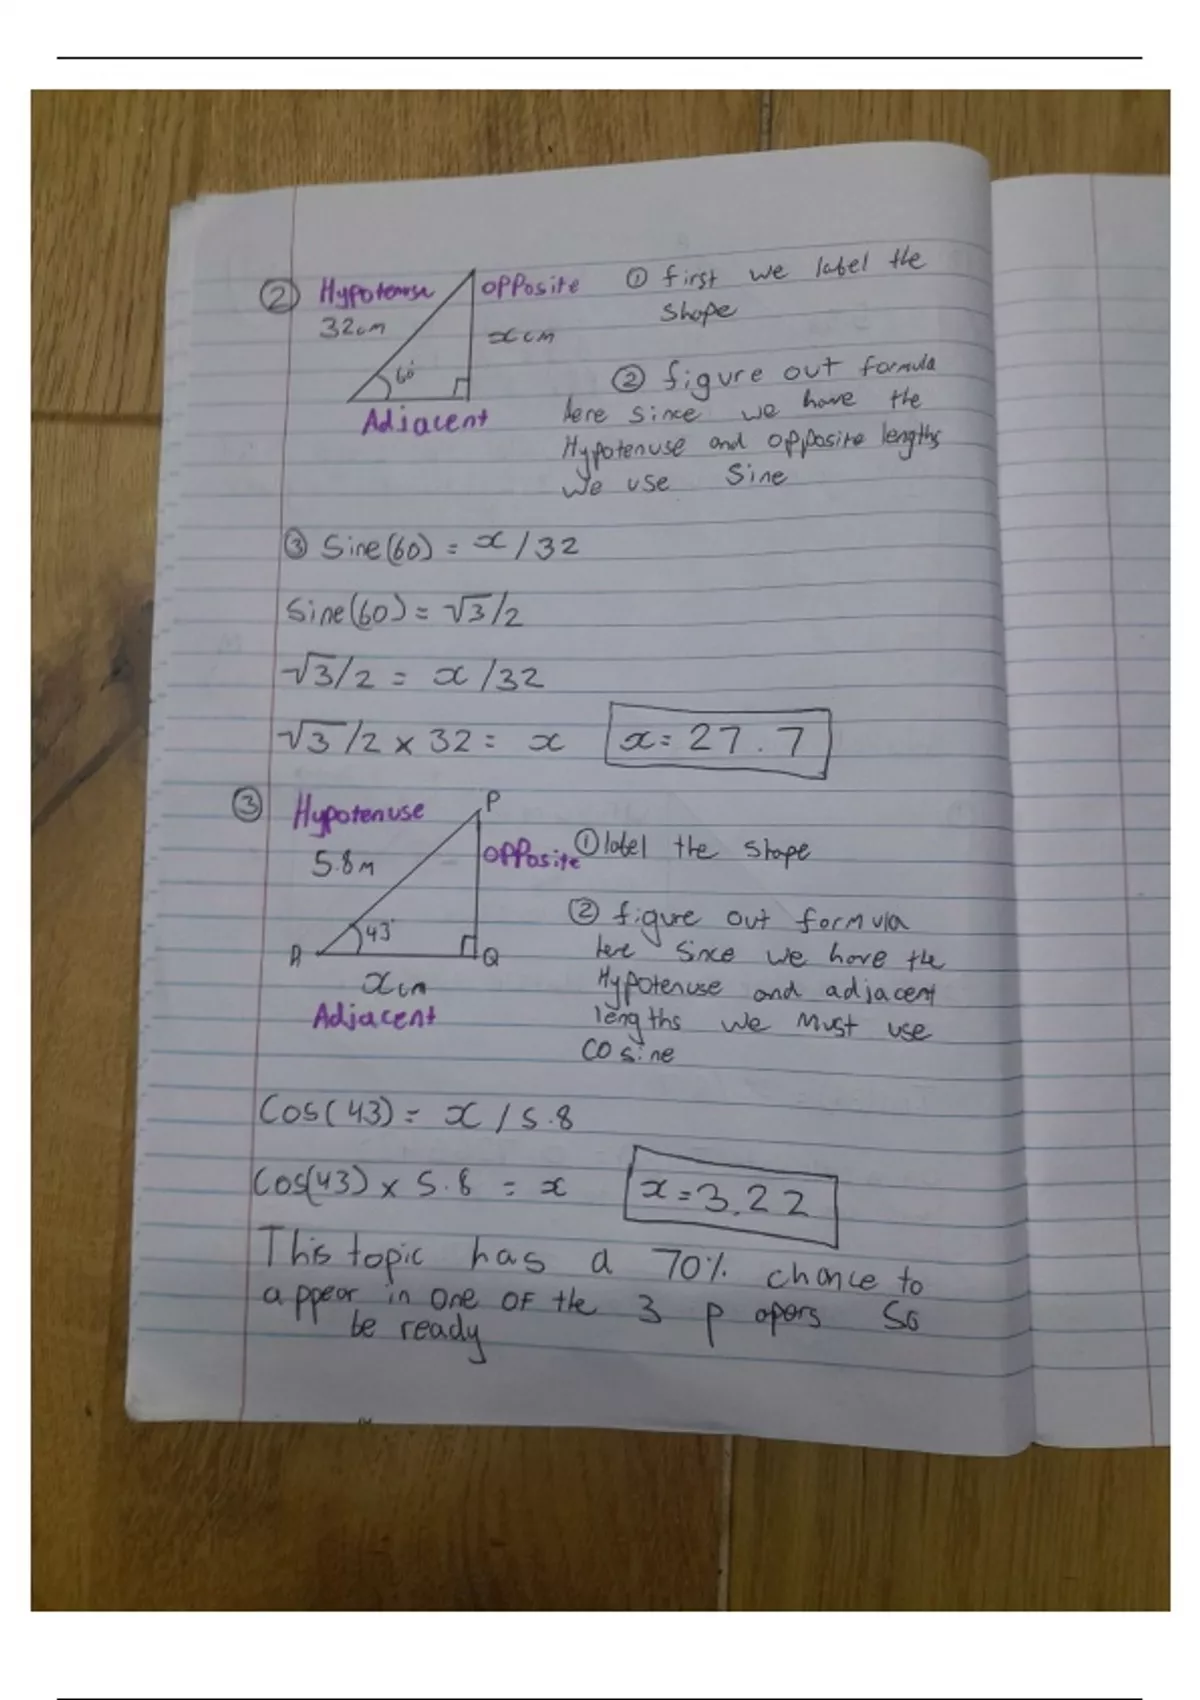 ② Hypotenuse opposite ① first we label the
32cm shape
xcm
60°
② figure out formula
Adjacent here since we have the
Hypotenuse and opposite lengths
we use Sine
③ Sine(60) = x/32
Sine(60) = √3/2
√3/2 = x/32
√3/2 × 32 = x x = 27.7
③ Hypotenuse P
5.8m opposite ① label the shape
② figure out formula
43° here since we have the
R Q
xcm Hypotenuse and adjacent
Adjacent lengths we must use
Cosine
Cos(43) = x/5.8
Cos(43) × 5.8 = x x = 3.22
This topic has a 70% chance to
appear in one of the 3 papers so
be ready